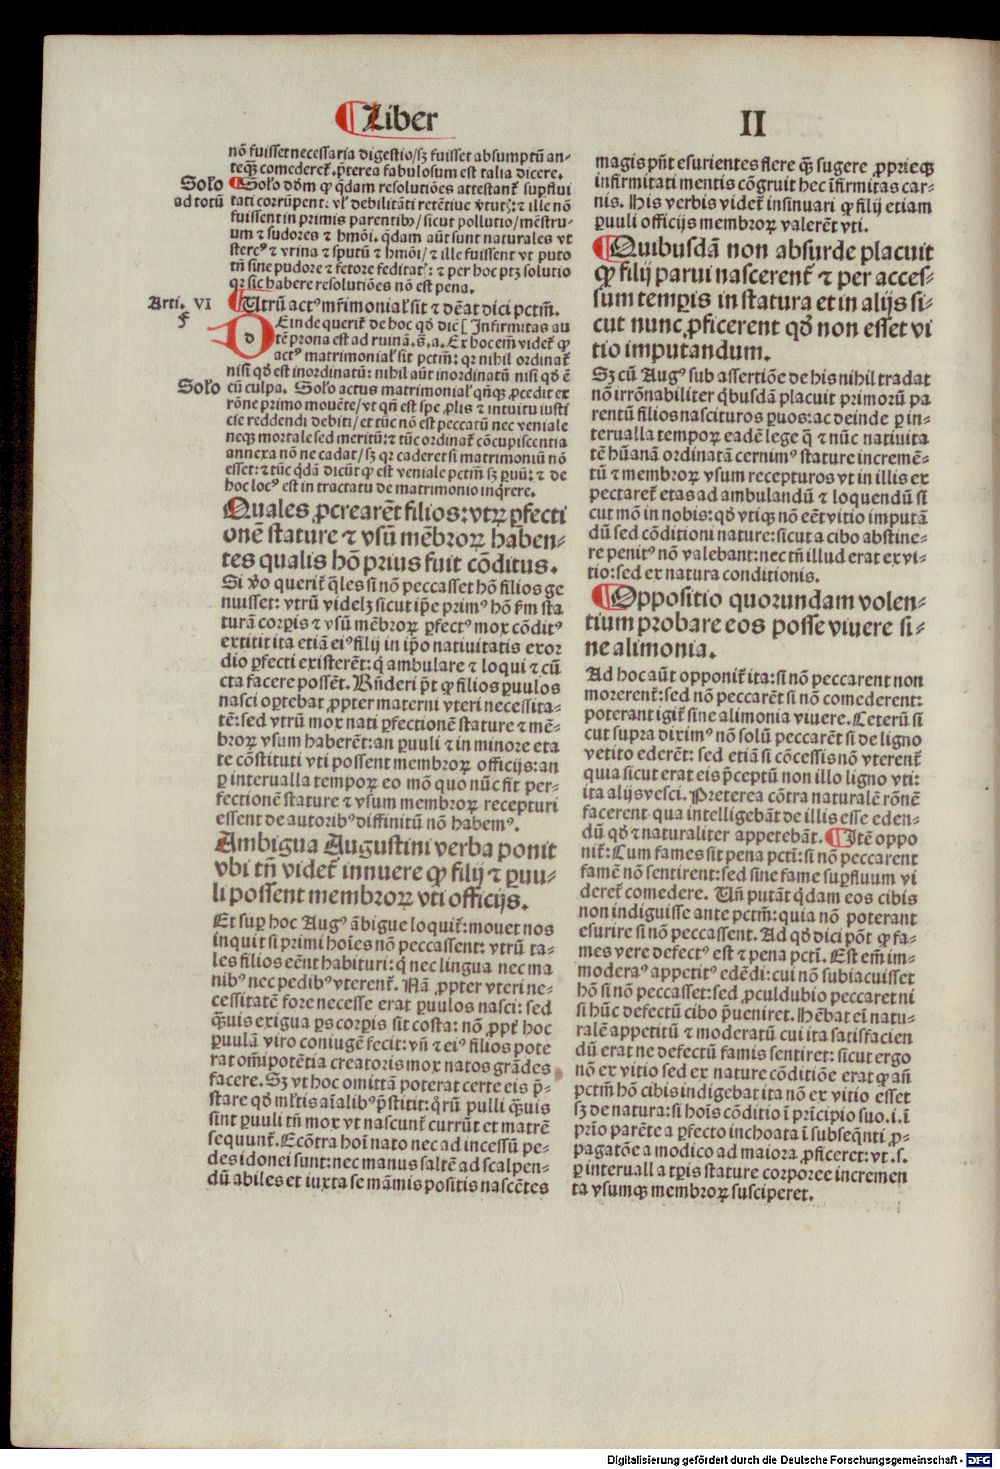 Liber
II
nō fuisset necessaria digestio/sꝫ fuisset absumptū an-
teqꝫ comederet̄. p̄terea fabulosum est talia dicere.
Solo
ad totū
¶ Solo dōm ꝙ q̄dam resolutiōes attestant̄ supflui
tati corrūpent: vl' debilitāti retētiue v̓tut}: ⁊ ille nō
fuissent in primis parentibꝰ/sicut pollutio/mēstru-
um ⁊ sudores ⁊ hmōi. q̄dam aūt sunt naturales vt
stercꝰ ⁊ vrina ⁊ sputū ⁊ hmōi/⁊ ille fuissent vt puto
tn̄ sine pudore ⁊ fetore feditat}: ⁊ per hoc ptꝫ solutio
qꝛ sic habere resolutiōes nō est pena.
Arti. VI
¶ Utrū actꝰ mr̄imonial' sit ⁊ dēat dici pctm̄.
Deinde querit̄ de hoc qd̓ dic̄ [Infirmitas au
tē prona est ad ruinā. s̄. a. Ex hoc em̄ videt̄ ꝙ
actꝰ matrimonial' sit pctm̄: qꝛ nihil ordinat̄
nisi qd̓ est inordinatū: nihil aūt inordinatū nisi qd̓ ē
Solo
cū culpa. Solo actus matrimonial' qn̄qꝫ ꝓcedit ex
rōne primo mouēte/vt qn̄ est spe ꝓlis ⁊ intuitu iusti
cie reddendi debiti/et tūc nō est peccatū nec veniale
neqꝫ mortale sed meritū: ⁊ tūc ordinat̄ cōcupiscentia
annexa nō ne cadat/sꝫ qꝛ caderet si matrimoniū nō
esset: ⁊ tūc q̄dā dicūt ꝙ est veniale pctm̄ sꝫ ꝑuū: ⁊ de
hoc locꝰ est in tractatu de matrimonio inq̄rere.
Quales ꝓcrearēt filios: vtꝝ ꝑfecti
onē stature ⁊ vsū mēbroꝝ haben-
tes qualis hō prius fuit cōditus.
Si v̓o querit̄ q̄les si nō peccasset hō filios ge
nuisset: vtrū videlꝫ sicut ip̄e primꝰ hō ẜm sta
turā corꝑis ⁊ vsū mēbroꝝ ꝑfectꝰ mox cōditꝰ
extitit ita etiā eiꝰ filij in ip̄o natiuitatis exor
dio ꝑfecti existerēt: q̄ ambulare ⁊ loqui ⁊ cū
cta facere possēt. Rn̄deri pt̄ ꝙ filios ꝑuulos
nasci oꝑtebat ꝓpter materni vteri necessita-
tē: sed vtrū mox nati ꝑfectionē stature ⁊ mē-
broꝝ vsum haberēt: an ꝑuuli ⁊ in minore eta
te cōstituti vti possent membroꝝ officijs: an
ꝑ interualla tempoꝝ eo mō quo nūc fit per-
fectionē stature ⁊ vsum membroꝝ recepturi
essent de autoribꝰ diffinitū nō habemꝰ.
Ambigua Augustini verba ponit
vbi tn̄ videt̄ innuere ꝙ filij ⁊ ꝑuu-
li possent membroꝝ vti officijs.
Et suꝑ hoc Augꝰ ābigue loquit̄: mouet nos
inquit si primi hoīes nō peccassent: vtrū ta-
les filios eēnt habituri: q̄ nec lingua nec ma
nibꝰ nec pedibꝰ vterent̄. Nā ꝓpter vteri ne-
cessitatē fore necesse erat ꝑuulos nasci: sed
qꝫuis exigua ꝑs corꝑis sit costa: nō ꝓpt̓ hoc
ꝑuulā viro coniugē fecit: vn̄ ⁊ eiꝰ filios pote
rat om̄ipotētia creatoris mox natos grādes
facere. Sꝫ vt hoc omittā poterat certe eis p̄-
stare qd̓ ml'tis aīalibꝰ p̄stitit: qrū pulli qꝫuis
sint ꝑuuli tn̄ mox vt nascunt̄ currūt et matrē
sequunt̄. Ecōtra hoī nato nec ad incessū pe-
des idonei sunt: nec manus saltē ad scalpen-
dū abiles et iuxta se māmis positis nascētes
magis pn̄t esurientes flere qꝫ sugere ꝓprieqꝫ
infirmitati mentis cōgruit hec īfirmitas car-
nis. His verbis videt̄ insinuari ꝙ filij etiam
ꝑuuli officijs membroꝝ valerēt vti.
¶ Quibusdā non absurde placuit
ꝙ filij parui nascerent̄ ⁊ per acces-
sum temꝑis in statura et in alijs si-
cut nunc ꝓficerent qd̓ non esset vi
tio imputandum.
Sꝫ cū Augꝰ sub assertiōe de his nihil tradat
nō irrōnabiliter q̄busdā placuit primorū pa
rentū filios nascituros ꝑuos: ac deinde ꝑ in-
terualla tempoꝝ eadē lege q̄ ⁊ nūc natiuita
tē hūanā ordinatā cernimꝰ stature incremē-
tū ⁊ membroꝝ vsum recepturos vt in illis ex
pectaret̄ etas ad ambulandū ⁊ loquendū si
cut mō in nobis: qd̓ vtiqꝫ nō eēt vitio imputā
dū sed cōditioni nature: sicut a cibo abstine-
re penitꝰ nō valebant: nec tn̄ illud erat ex vi-
tio: sed ex natura conditionis.
¶ Oppositio quorundam volen-
tium probare eos posse viuere si-
ne alimonia.
Ad hoc aūt opponit̄ ita: si nō peccarent non
morerent̄: sed nō peccarēt si nō comederent:
poterant igit̄ sine alimonia viuere. Ceterū si
cut supra diximꝰ nō solū peccarēt si de ligno
vetito ederēt: sed etiā si cōcessis nō vterent̄
quia sicut erat eis p̄ceptū non illo ligno vti:
ita alijs vesci. Preterea cōtra naturalē rōnē
facerent qua intelligebāt de illis esse eden-
dū qd̓ ⁊ naturaliter appetebāt. ¶ Itē oppo
nit̄: Cum fames sit pena pcti: si nō peccarent
famē nō sentirent: sed sine fame suꝑfluum vi
deret̄ comedere. Un̄ putāt q̄dam eos cibis
non indiguisse ante pctm̄: quia nō poterant
esurire si nō peccassent. Ad qd̓ dici pōt ꝙ fa-
mes vere defectꝰ est ⁊ pena pcti. Est em̄ im-
moderaꝰ appetitꝰ edēdi: cui nō subiacuisset
hō si nō peccasset: sed ꝓculdubio peccaret ni
si hūc defectū cibo p̄ueniret. Hēbat eī natu-
ralē appetitū ⁊ moderatū cui ita satisfacien
dū erat ne defectū famis sentiret: sicut ergo
nō ex vitio sed ex nature cōditiōe erat ꝙ an̄
pctm̄ hō cibis indigebat ita nō ex vitio esset
sꝫ de natura: si hoīs cōditio ī prīcipio suo. i. ī
prīo parēte a ꝑfecto inchoata ī subseq̄nti ꝓ-
pagatōe a modico ad maiora ꝓficeret: vt. s.
ꝑ interuall a tꝑis stature corporee incremen
ta vsumqꝫ membroꝝ susciperet.
Digitalisierung gefördert durch die Deutsche Forschungsgemeinschaft - DFG